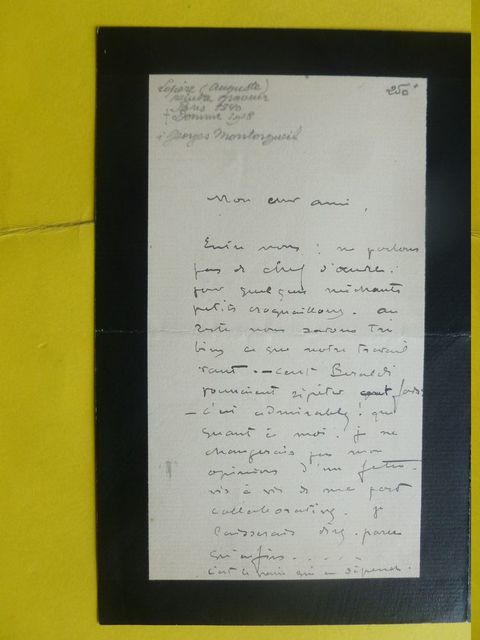 Lepère (Auguste)
peintre graveur
Paris 1849
† Domme 1918
à Georges Montorgueil
250
Mon cher ami,
Entre nous : ne parlons
pas de chef d'œuvre :
pour quelques méchants
petits croquaillons. au
reste nous savons très
bien ce que notre travail
vaut. — cent Beraldi
pourraient répéter cent fois
— c'est admirable ! que
quant à moi. je ne
changerais pas mon
opinion d'un fétu
vis à vis de ma part
collaborative. je
laisserais dire. parce
qu'enfin. . . . .
c'est le pain qui en dépend.